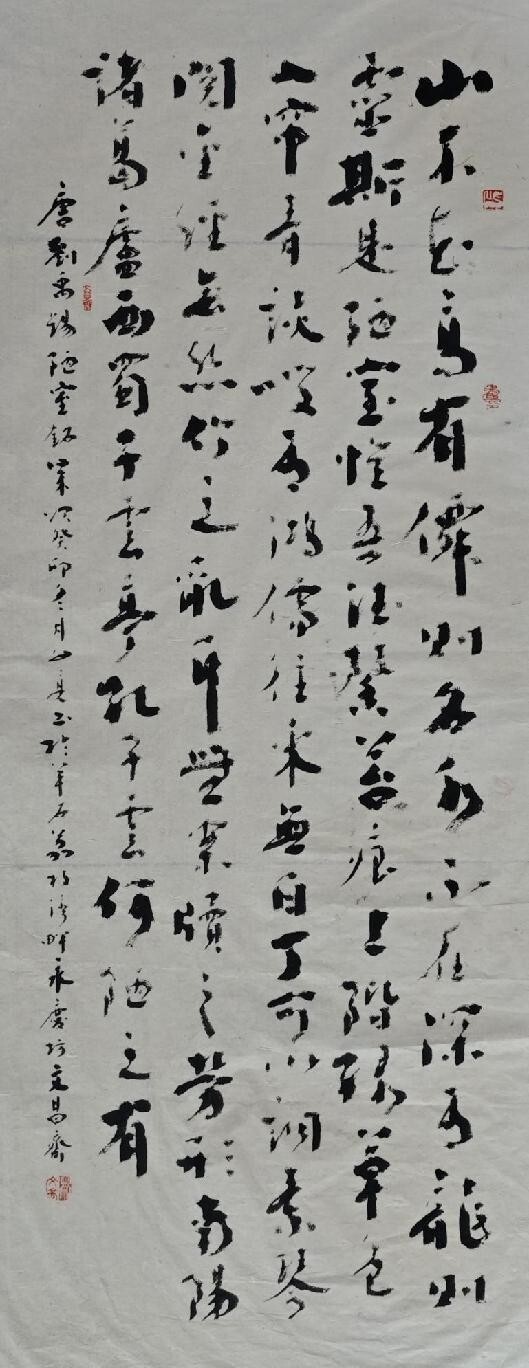 山不在高有僊則名水不在深有龍則
靈斯是陋室惟吾德馨苔痕上階綠草色
入帘青談笑有鴻儒往來無白丁可以調素琴
閱金經無絲竹之亂耳無案牘之勞形南陽
諸葛廬西蜀子雲亭孔子雲何陋之有
唐劉禹錫陋室銘 歲次癸卯冬月 書於 永慶坊文昌齋